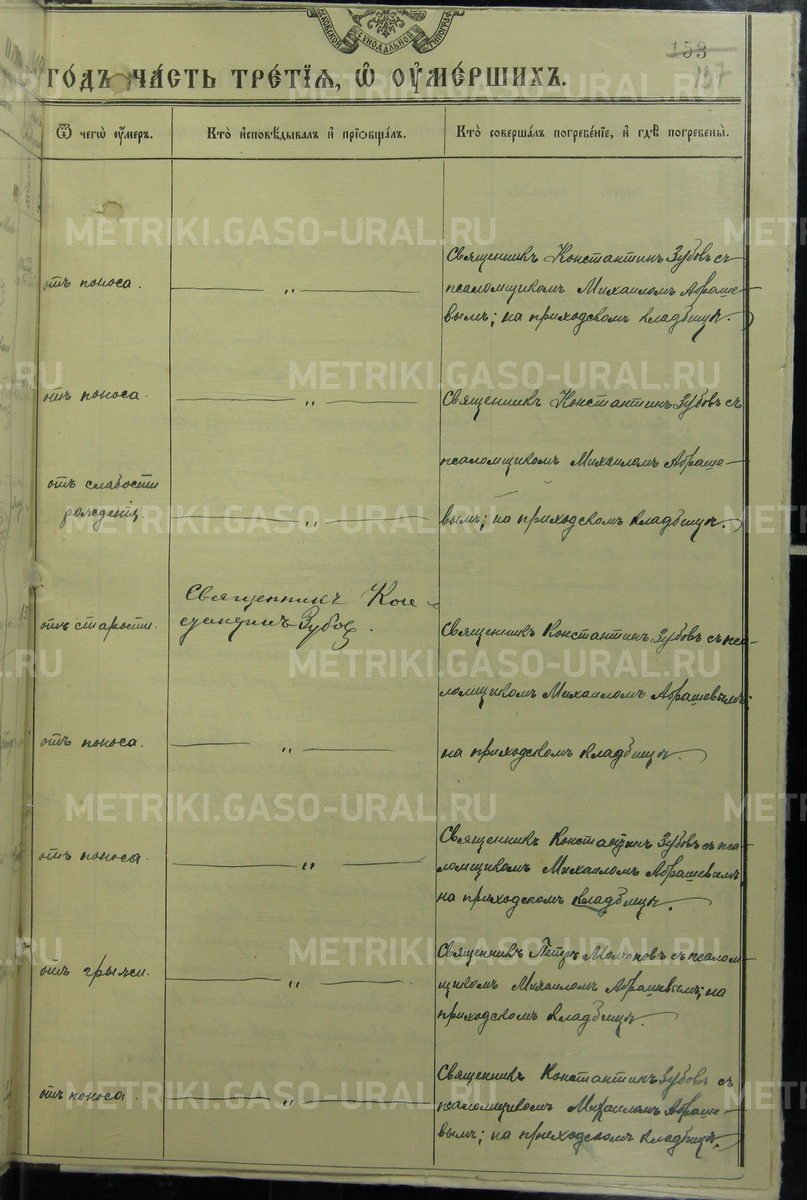 МОСКОВСКОЙ СѴНОДАЛЬНОЙ ТИПОГРАФ
153
157
го́дъ ча́сть тре́тїѧ, ѡ҆ оу҆ме́ршихъ.
Ѿ чегѡ̀ оу҆́меръ.
Кто̀ и҆сповѣ́дывалъ и҆ прїѻбща́лъ.
Кто̀ соверша́лъ погребе́нїе, и҆ гдѣ̀ погребены̀.
отъ поноса.
— " —
Священникъ Константинъ Зубовъ съ
псаломщикомъ Михаиломъ Абраше-
вымъ; на приходскомъ кладбищѣ.
отъ поноса.
— " —
Священникъ Константинъ Зубовъ съ
псаломщикомъ Михаиломъ Абраше-
отъ слабости
рожденія
— " —
вымъ; на приходскомъ кладбищѣ.
отъ старости.
Священникъ Кон-
стантинъ Зубовъ.
Священникъ Константинъ Зубовъ съ пса-
ломщикомъ Михаиломъ Абрашевымъ;
отъ поноса.
— " —
на приходскомъ кладбищѣ.
отъ поноса.
— " —
Священникъ Константинъ Зубовъ съ пса-
ломщикомъ Михаиломъ Абрашевымъ
на приходскомъ кладбищѣ.
отъ грыжи.
— " —
Священникъ Петръ съ псалом-
щикомъ Михаиломъ Абрашевымъ; на
приходскомъ кладбищѣ.
отъ поноса.
— " —
Священникъ Константинъ Зубовъ съ
псаломщикомъ Михаиломъ Абраше-
вымъ; на приходскомъ кладбищѣ.
METRIKI.GASO-URAL.RU